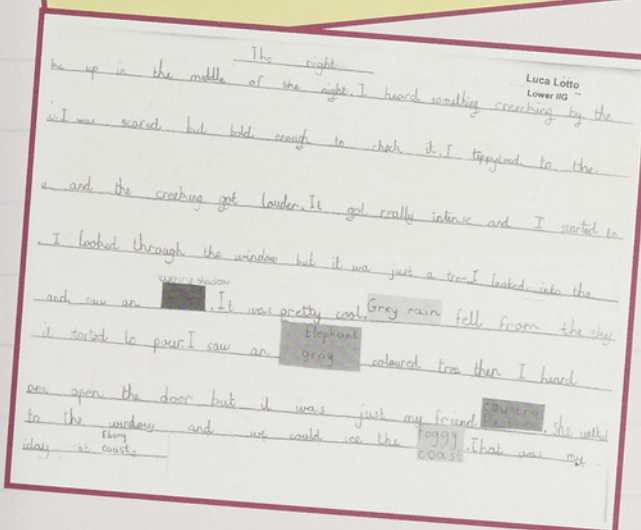 The night
Luca Lotto
Lower IIG
ke up in the middle of the night. I heard something creecking by the
I was scared but bold enough to check it. I tippytoed to the
and the creeking got louder. It got really intense and I started to
I looked through the window but it was just a tree. I looked into the
shadow
and saw an . It was pretty cool. Grey rain fell from the sky
it started to pour. I saw an Elephant gray coloured tree then I heard
one open the door but it was just my friend country . She walked
to the window and we could see the foggy coast . That was my
iday at Ebony coast.